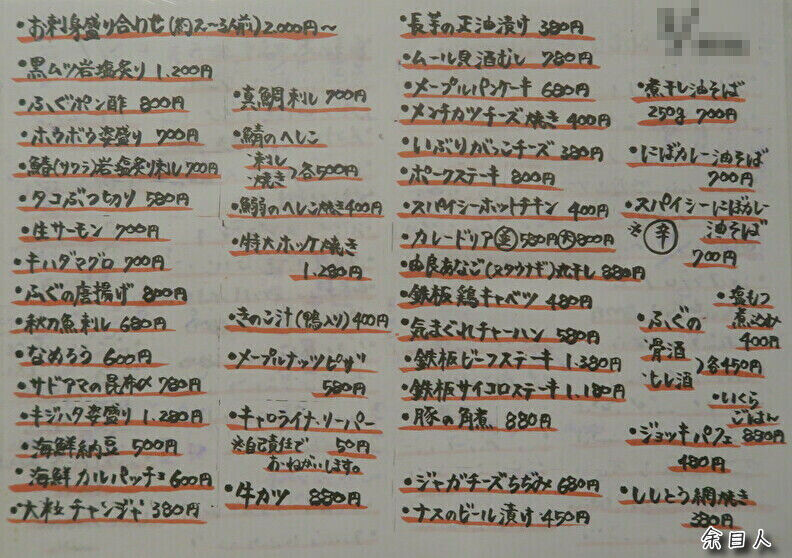 ・お刺身盛り合わせ(約2~3人前)2,000円~
・黒ムツ岩塩炙り 1,200円
・ふぐポン酢 800円
・ホウボウ姿盛り 700円
・鰆(サワラ)岩塩炙り刺し 700円
・タコぶつ切り 580円
・生サーモン 700円
・キハダマグロ 700円
・ふぐの唐揚げ 800円
・秋刀魚刺し 680円
・なめろう 600円
・サドアマの昆布〆 780円
・キジハタ姿盛り 1,280円
・海鮮納豆 500円
・海鮮カルパッチョ 600円
・大粒チャンジャ 380円
・真鯛刺し 700円
・鯖のへしこ
刺し
焼き 各500円
・鰯のへしこ焼き 400円
・特大ホッケ焼き
1,280円
・きのこ汁(鴨入り)400円
・メープルナッツピザ
580円
・キャロライナ・リーパー
※自己責任で 50円
おねがいします。
・牛カツ 880円
・長芋の正油漬け 380円
・ムール貝酒むし 780円
・メープルパンケーキ 680円
・メンチカツチーズ焼き 400円
・いぶりがっこチーズ 380円
・ポークステーキ 800円
・スパイシーホットチキン 400円
・カレードリア 580円 大 800円
・由良あなご(ヌタウナギ)丸干し 880円
・鉄板鶏キャベツ 480円
・気まぐれチャーハン 580円
・鉄板ビーフステーキ 1,380円
・鉄板サイコロステーキ 1,180円
・豚の角煮 880円
・ジャガチーズちぢみ 680円
・ナスのビール漬け 450円
・煮干し油そば
250g 700円
・にぼカレー油そば
700円
・スパイシーにぼカレー
※辛 油そば
700円
・ふぐの
骨酒
ヒレ酒 各450円
・塩もつ
煮込み
400円
・いくら
ごはん
880円
・ジョッキパフェ
480円
・ししとう網焼き
380円
余目人